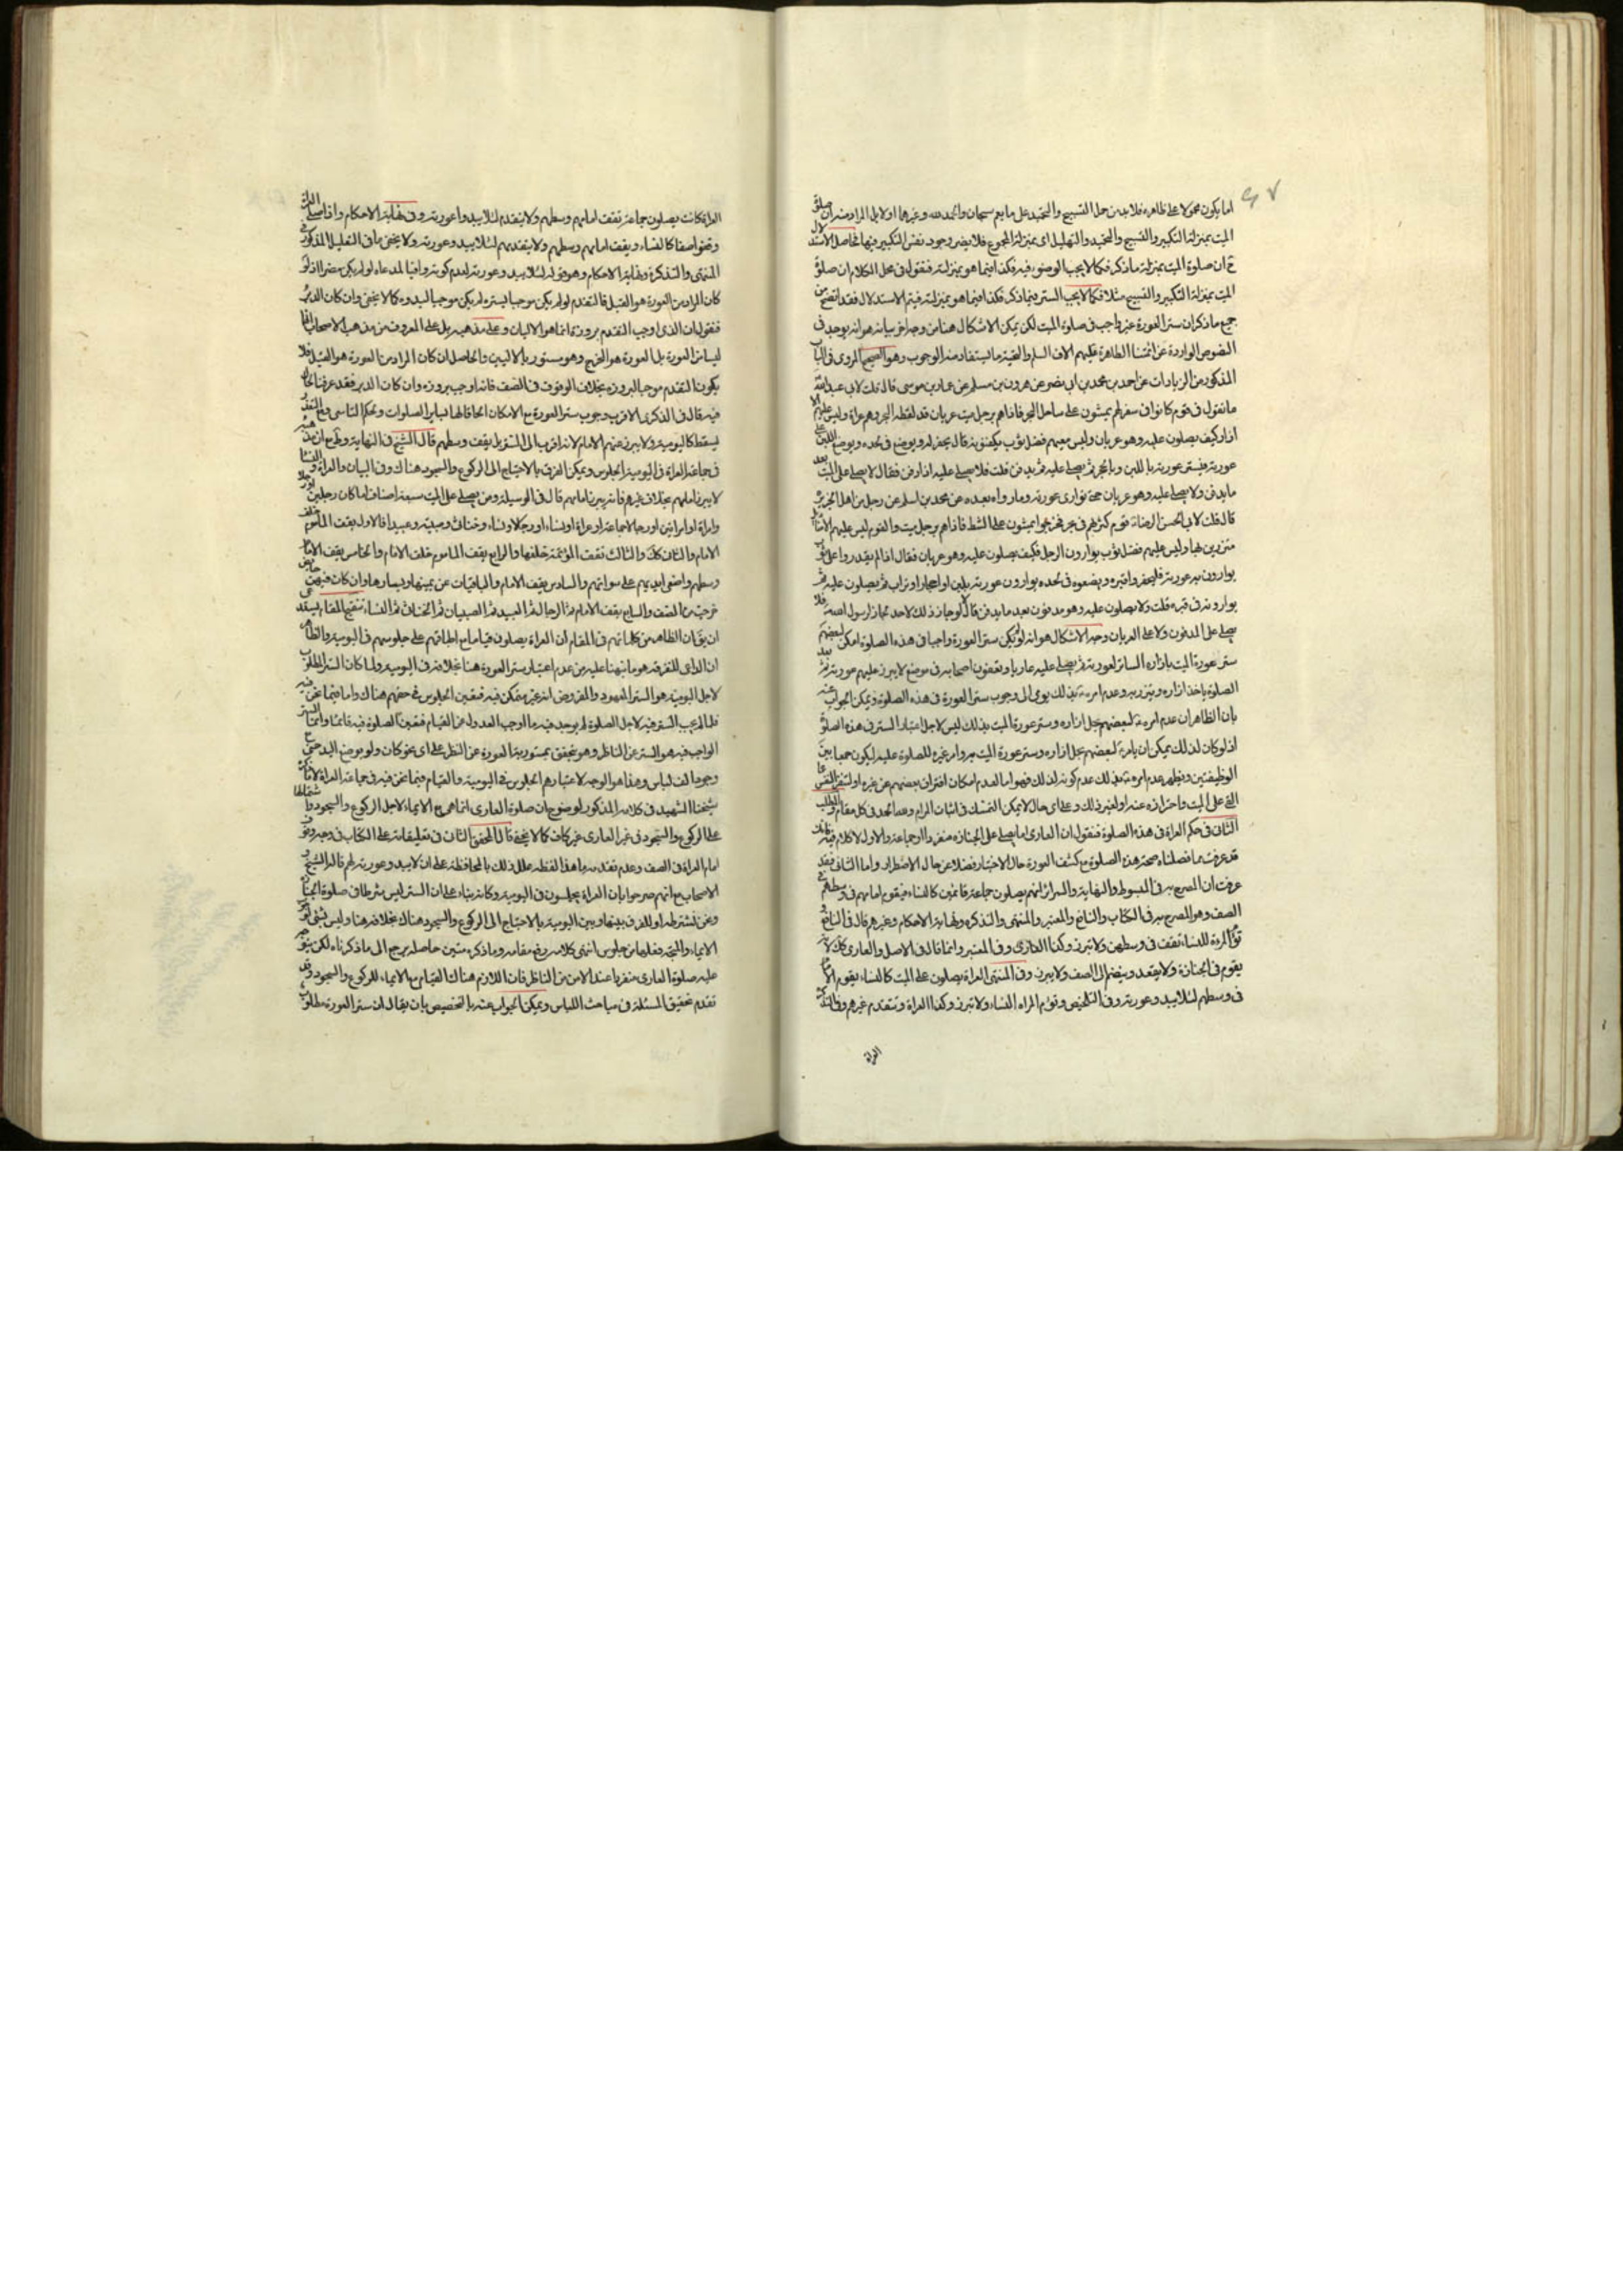 اما يكون محمولا على ظاهره فلا بد من حمل التسبيح والتحميد على ما يعم سبحان والحمد لله وغيرهما اولا بل المراد منه ان صلوة
الميت بمنزلة التكبير والتسبيح والتحميد والتهليل اى بمنزلة المجموع فلا يضر وجود نفس التكبير فيها فحاصل الاستدلال
ح ان صلوة الميت بمنزلة ما ذكر فكما لا يجب الوضوء فيه فكذا فيما هو بمنزلته فنقول فى محل الكلام ان صلوة
الميت بمنزلة التكبير والتسبيح مثلا فكما لا يجب الستر فيما ذكر فكذا فيما هو بمنزلته فيتم الاستدلال فقد اتضح من
جميع ما ذكر ان ستر العورة غير واجب فى صلوة الميت لكن يمكن الاشكال هنا من وجه اخر بيانه هو انه يوجد فى
النصوص الواردة عن ائمتنا الطاهرة عليهم الاف السلم والتحية ما يستفاد منه الوجوب وهو الصحيح المروى فى الباب
المذكور من الزيادات عن احمد بن محمد بن ابى نصر عن هرون بن مسلم عن عمار بن موسى قال قلت لابى عبد الله
ما تقول فى قوم كانوا فى سفر لهم يمشون على ساحل البحر فاذا هم برجل ميت عريان قد لفظه البحر وهم عراة وليس عليهم الا
ازار كيف يصلون عليه وهو عريان وليس معهم فضل ثوب يكفنونه قال يحفر له ويوضع فى لحده ويوضع اللبن على
عورته فيستر عورته باللبن وبالحجر ثم يصلى عليه ثم يدفن قلت فلا يصلى عليه اذا دفن فقال لا يصلى على الميت بعد
ما يدفن ولا يصلى عليه وهو عريان حتى توارى عورته وما رواه بعده عن محمد بن اسلم عن رجل من اهل الجزيرة
قال قلت لابى الحسن الرضا ع قوم كسر بهم فى بحر فخرجوا يمشون على الشط فاذا هم برجل ميت والقوم ليس عليهم الا مناديل
متزرين بها وليس عليهم فضل ثوب يوارون الرجل فكيف يصلون عليه وهو عريان فقال اذا لم يقدروا على ثوب
يوارون به عورته فليحفروا قبره ويضعوه فى لحده يوارون عورته بلبن او احجار او تراب ثم يصلون عليه ثم
يوارونه فى قبره قلت ولا يصلون عليه وهو مدفون بعد ما يدفن قال لا لو جاز ذلك لاحد لجاز لرسول الله فلا
يصلى على المدفون ولا على العريان وجه الاشكال هو انه لو لم يكن ستر العورة واجبا فى هذه الصلوة امكن لبعضهم
ستر عورة الميت بازاره الساتر لعورته ثم يصلى عليه عاريا ويقفون اصحابه فى موضع لا يبرز عليهم عورته ثم بعد
الصلوة ياخذ ازاره ويتزر به وعدم امره ع بذلك يومى الى وجوب ستر العورة فى هذه الصلوة ويمكن الجواب عنه
بان الظاهر ان عدم امره ع لبعضهم بحل ازاره وستر عورة الميت بذلك ليس لاجل اعتبار الستر فى هذه الصلوة
اذ لو كان لذلك يمكن ان يامره ع لبعضهم بحل ازاره وستر عورة الميت به وامر غيره للصلوة عليه ليكون جمعا بين
الوظيفتين ويظهر عدم امره ع بذلك عدم كونه لذلك فهو اما لعدم امكان افتراق بعضهم عن غيره او لتنفر النفس غالبا
التى على الميت واحترازه عنه او لغير ذلك وعلى اى حال لا يمكن التمسك فى اثبات المرام ولله الحمد فى كل مقام والمطلب
الثانى فى حكم العراة فى هذه الصلوة فنقول ان العارى اما يصلى على الجنازة منفردا او جماعة والاول لا كلام فيه لانك
قد عرفت مما فصلناه صحة هذه الصلوة مع كشف العورة حال الاختيار فضلا عن حال الاضطرار واما الثانى فقد
عرفت ان المصرح به فى المبسوط والنهاية والسرائر انهم يصلون جماعة قائمين كالنساء فيقوم امامهم فى وسطهم فى
الصف وهو المصرح به فى الكتاب والنافع والمعتبر والمنتهى والتذكرة ونهاية الاحكام وغيرهم قال فى النافع و
تؤم المرءة للنساء تقف فى وسطهن ولا تبرز وكذا العارى وفى المعتبر وانما قال فى الاصل والعارى كذلك لانه
يقوم فى الجنازة ولا يقعد وينضم الى الصف ولا يبرز وفى المنتهى العراة يصلون على الميت كالنساء يقوم الامام
فى وسطهم لئلا يبدو عورته وفى التلخيص وتؤم المراة النساء ولا تبرز وكذا العراة وتتقدم غيرهم وفى التذكرة
العراة
العراة كانت يصلون جماعة تقف امامهم وسطهم ولا يتقدم لئلا يبدوا عورته وفى نهاية الاحكام واذا صلى العراة
وقفوا صفا كالنساء ويقف امامهم وسطهم ولا يتقدمهم لئلا يبدو عورته ولا يخفى ما فى التعليل المذكور فى
المنتهى والتذكرة ونهاية الاحكام وهو قوله لئلا يبدو عورته لعدم كونه وافيا لمدعاه لو لم يكن مضرا اذ لو
كان المراد من العورة هو القبل فالتقدم لو لم يكن موجبا لستره لم يكن موجبا لبدوه كما لا يخفى وان كان الدبر
فنقول ان الذى اوجب التقدم بروزه انما هو الاليان وعلى مذهبه بل على المعروف من مذهب الاصحاب انها
ليسا من العورة بل العورة هو المخرج وهو مستور بالاليين والحاصل ان كان المراد من العورة هو القبل فلا
يكون التقدم موجبا لبروزه بخلاف الوقوف فى الصف فانه اوجب بروزه وان كان الدبر فقد عرفنا الحال
فيه قال فى الذكرى الاقرب وجوب ستر العورة مع الامكان الحاقا لها بساير الصلوات وبحكم التاسى ومع التعذر
يسقط كاليومية ولا يبرز عنهم الامام لانه اقرب الى الستر بل يقف وسطهم قال الشيخ فى النهاية
فى جماعة العراة فى اليومية الجلوس ويمكن الفرق بالاحتياج الى الركوع والسجود هناك وفى البيان والعراة و
لا يبرز امامهم بخلاف غيرهم فانه يبرز امامهم قال فى الوسيلة ومن يصلى على الميت سبعة اصناف اما كان رجلين او رجلا
وامراة او امراتين او رجالا جماعة او عراة او نساء او رجالا ونساء وخناثى وصبية وعبيدا فالاول يقف الماموم خلف
الامام والثانى كذلك والثالث تقف المؤتمة خلفها والرابع يقف الماموم خلف الامام والخامس يقف الامام
وسطهم واضعى ايديهم على سواتهم والسادس يقف الامام والباقيات عن يمينها ويسارها وان كان فيهن حائض
خرجت من الصف والسابع يقف الامام ثم الرجال ثم العبيد ثم الصبيان ثم الخناثى ثم النساء تنقيح المقام يستدعى
ان يق ان الظاهر من كلماتهم فى المقام ان العراة يصلون قياما مع اطباقهم على جلوسهم فى اليومية والظاهر
ان الداعى للتفرقة هو ما نبهنا عليه من عدم اعتبار ستر العورة هنا بخلافه فى اليومية ولما كان الستر المطلوب
لاجل اليومية هو الستر المعهود والمفروض انه غير متمكن فيه فتعين الجلوس فى حقهم هناك واما فيما نحن فيه
فلما لم يجب الستر فيه لاجل الصلوة لم يوجد فيه ما اوجب العدول عن القيام فتعين الصلوة فيه قائما وانما الستر
الواجب فيه هو الستر عن الناظر وهو يتحقق بمستورية العورة عن النظر على اى نحو كان ولو بوضع اليد حتى مع
وجود الف لباس وهذا هو الوجه لاعتبارهم الجلوس فى اليومية والقيام فيما نحن فيه فى جماعة العراة لا ما ذكره
شيخنا الشهيد فى كلامه المذكور لوضوح ان صلوة العارى انما هى مع الايماء لاجل الركوع والسجود فاشتمالها
على الركوع والسجود فى غير العارى غير كاف كما لا يخفى قال المحقق الثانى فى تعليقاته على الكتاب فى وجه وقوف
امام العراة فى الصف وعدم تقدمه ما هذا لفظه علل ذلك بالمحافظة على ان لا يبدو عورته لهم قاله الشيخ و
الاصحاب مع انهم صرحوا بان العراة يجلسون فى اليومية وكانه بناء على ان الستر ليس شرطا فى صلوة الجنازة
ونحن نشترطه او للفرق بينها وبين اليومية بالاحتياج الى الركوع والسجود هناك بخلافه هنا وليس بشئ لوجوب
الايماء والمتجه فعلها من جلوس انتهى كلامه رفع مقامه وما ذكره متين حاصله يرجع الى ما ذكرناه لكن يتوجه
عليه صلوة العارى منفردا عند الامن من الناظر فان اللازم هناك القيام مع الايماء للركوع والسجود وقد
تقدم تحقيق المسئلة فى مباحث اللباس ويمكن الجواب عنه بالتخصيص بان يقال ان ستر العورة مطلوب